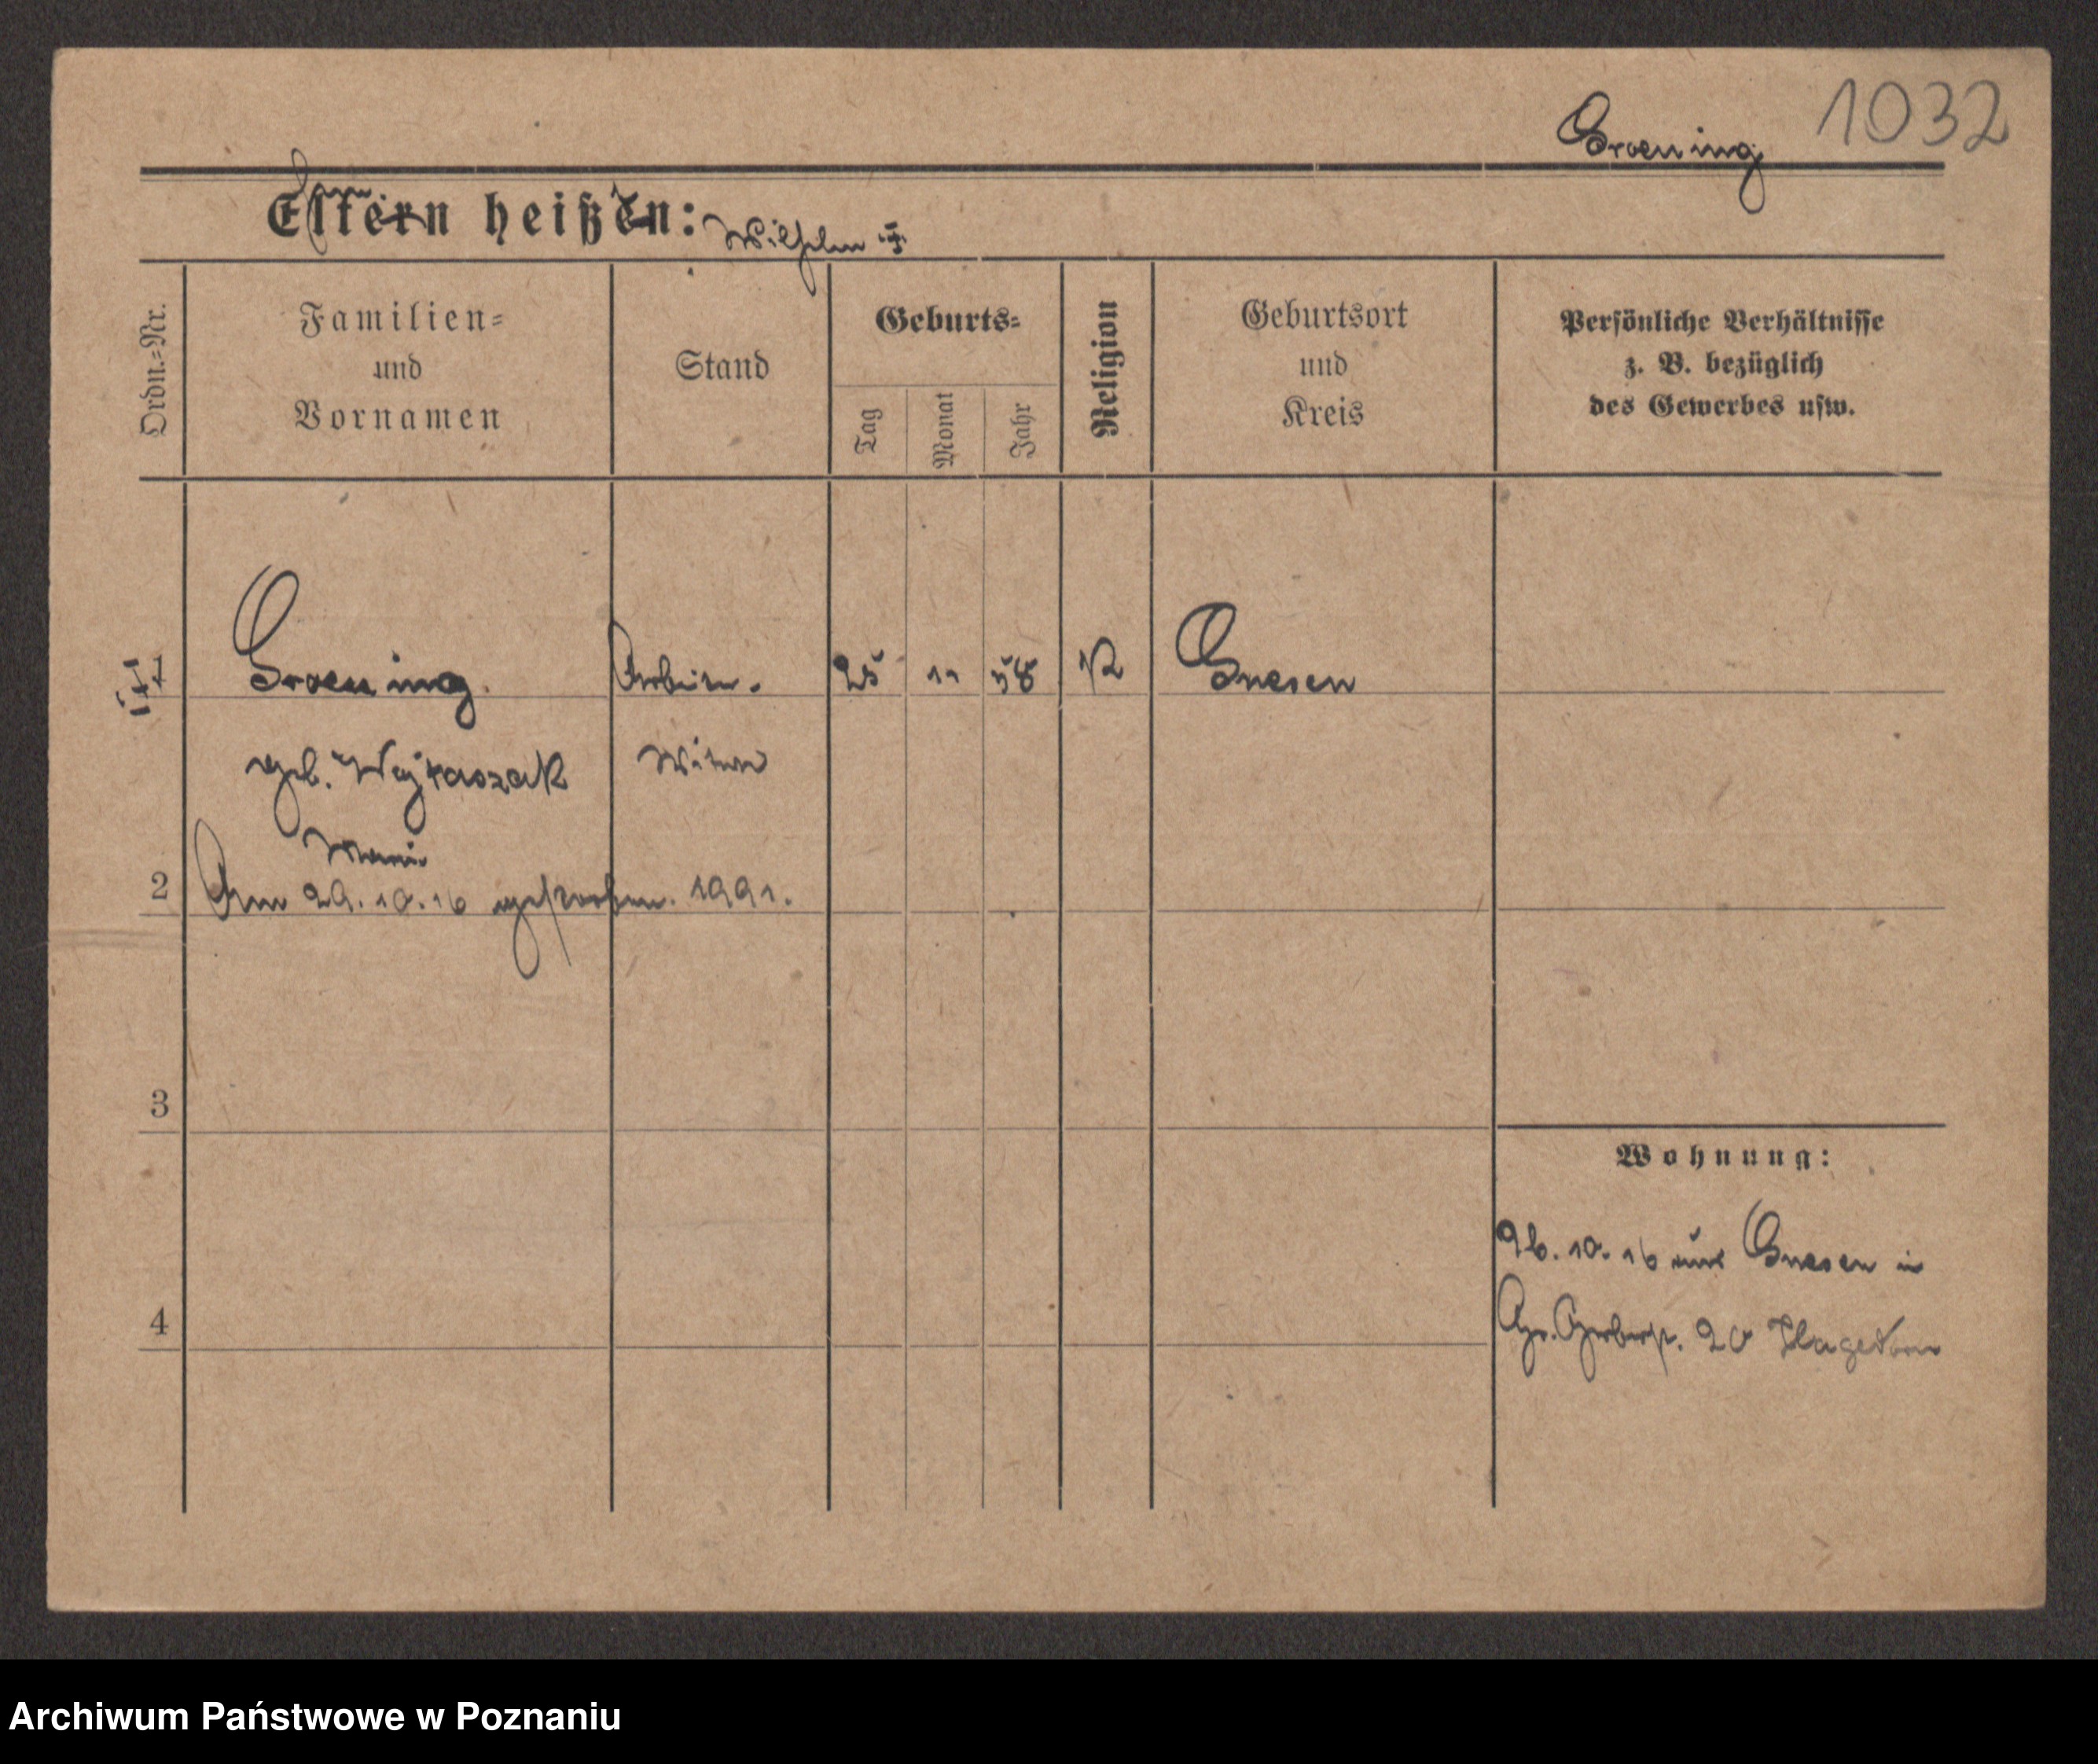 1032
Groening
Eltern heißen: Wilhelm †
Ordn.-Nr.
Familien-
und
Vornamen
Stand
Geburts-
Tag
Monat
Jahr
Religion
Geburtsort
und
Kreis
Persönliche Verhältnisse
z. B. bezüglich
des Gewerbes usw.
1 Groening Arbeiter- 25 11 58 K Gnesen
geb. Wojtaszak Witwe
Marie
2 Am 29.10.16 gestorben. 1991.
3
Wohnung:
26.10.16 aus Gnesen in
4
Gr. Gerberstr. 20 Hagedorn
Archiwum Państwowe w Poznaniu